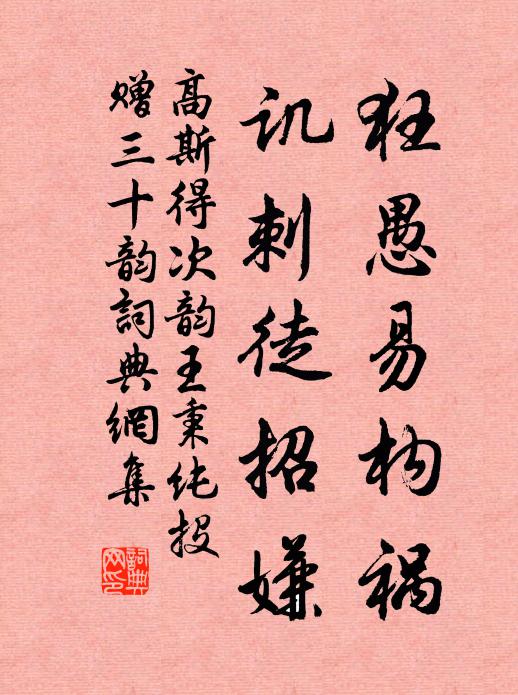 狂愚易构祸
讥刺徒招嫌
高斯得次韵王秉纯投
赠三十韵詞典網集
詞典网印